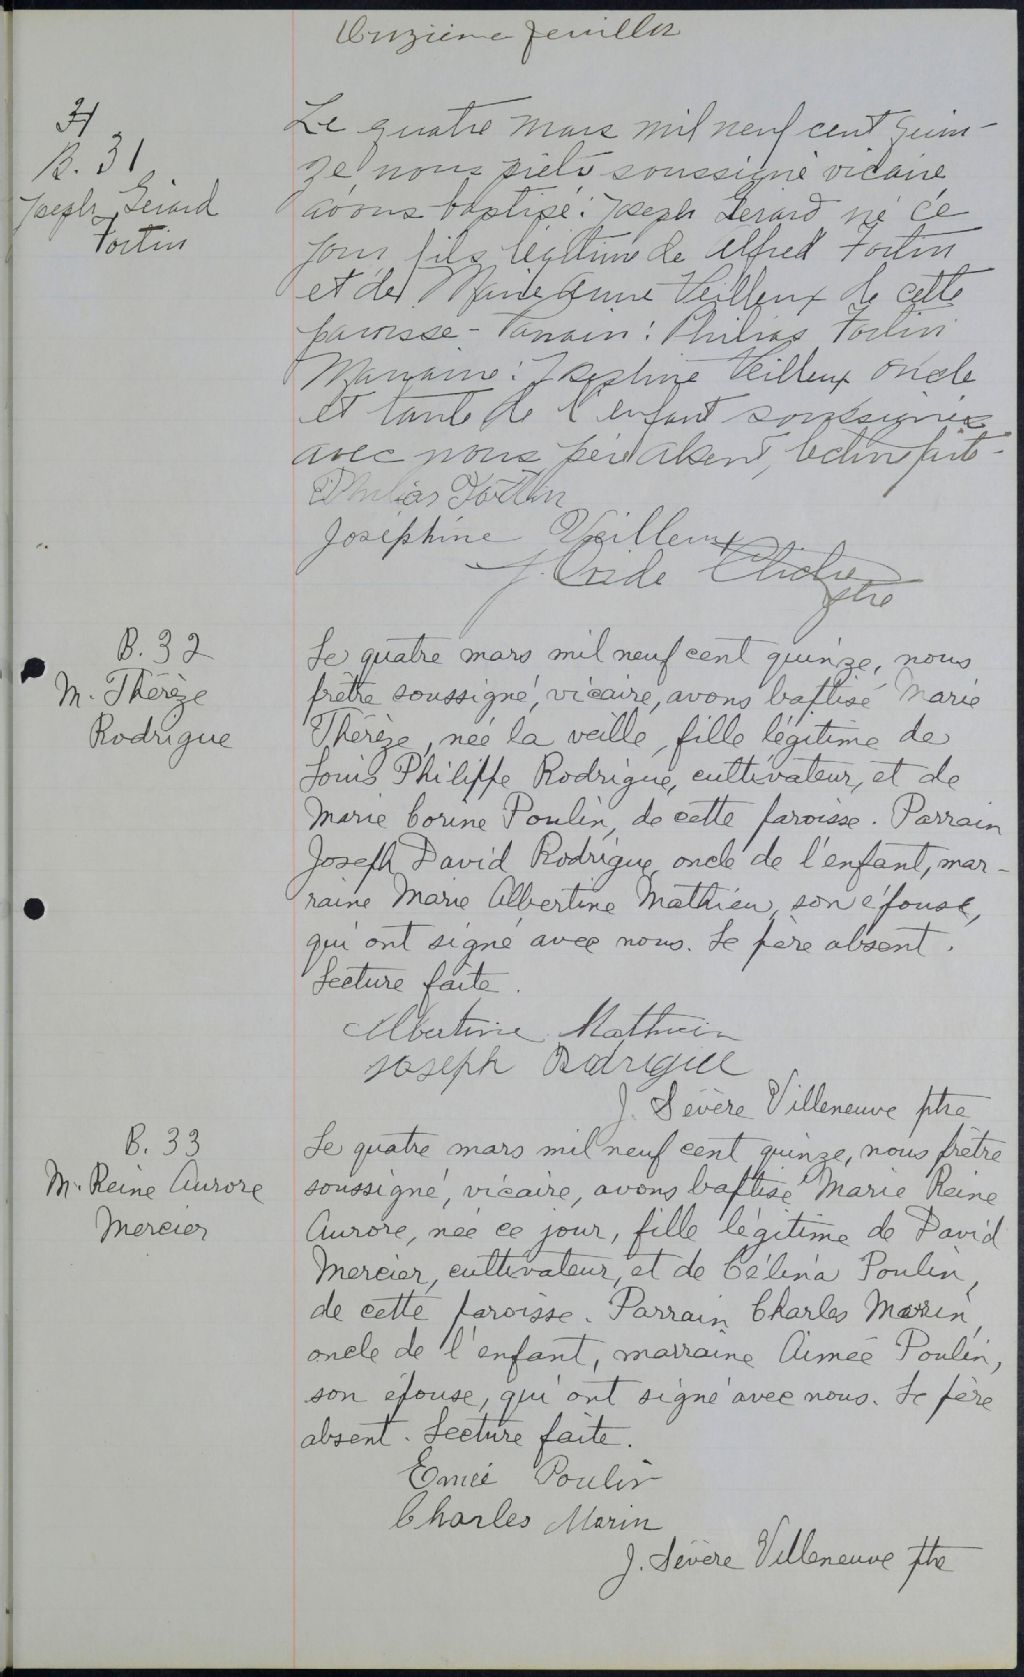 Onzième feuillet
31
B. 31
Joseph Gérard
Fortin
Le quatre mars mil neuf cent quin-
ze nous prêtre soussigné vicaire
avons baptisé: Joseph Gérard né ce
jour fils légitime de Alfred Fortin
et de Marie Anne Veilleux de cette
paroisse - Parrain: Philias Fortin
Marraine: Joséphine Veilleux oncle
et tante de l'enfant soussignés
avec nous père absent, lecture faite-
Philias Fortin
Joséphine Veilleux
J. Cliche
ptre
B. 32
M. Thérèze
Rodrigue
Le quatre mars mil neuf cent quinze, nous
prêtre soussigné, vicaire, avons baptisé Marie
Thérèze, née la veille, fille légitime de
Louis Philippe Rodrigue, cultivateur, et de
Marie Corine Poulin, de cette paroisse. Parrain
Joseph David Rodrigue, oncle de l'enfant, mar-
raine Marie Albertine Mathieu, son épouse,
qui ont signé avec nous. Le père absent.
Lecture faite.
Albertine Mathieu
Joseph Rodrigue
J. Sévère Villeneuve ptre
B. 33
M. Reine Aurore
Mercier
Le quatre mars mil neuf cent quinze, nous prêtre
soussigné, vicaire, avons baptisé Marie Reine
Aurore, née ce jour, fille légitime de David
Mercier, cultivateur, et de Célina Poulin,
de cette paroisse. Parrain Charles Marin,
oncle de l'enfant, marraine Aimée Poulin,
son épouse, qui ont signé avec nous. Le père
absent. Lecture faite.
Emée Poulin
Charles Marin
J. Sévère Villeneuve ptre